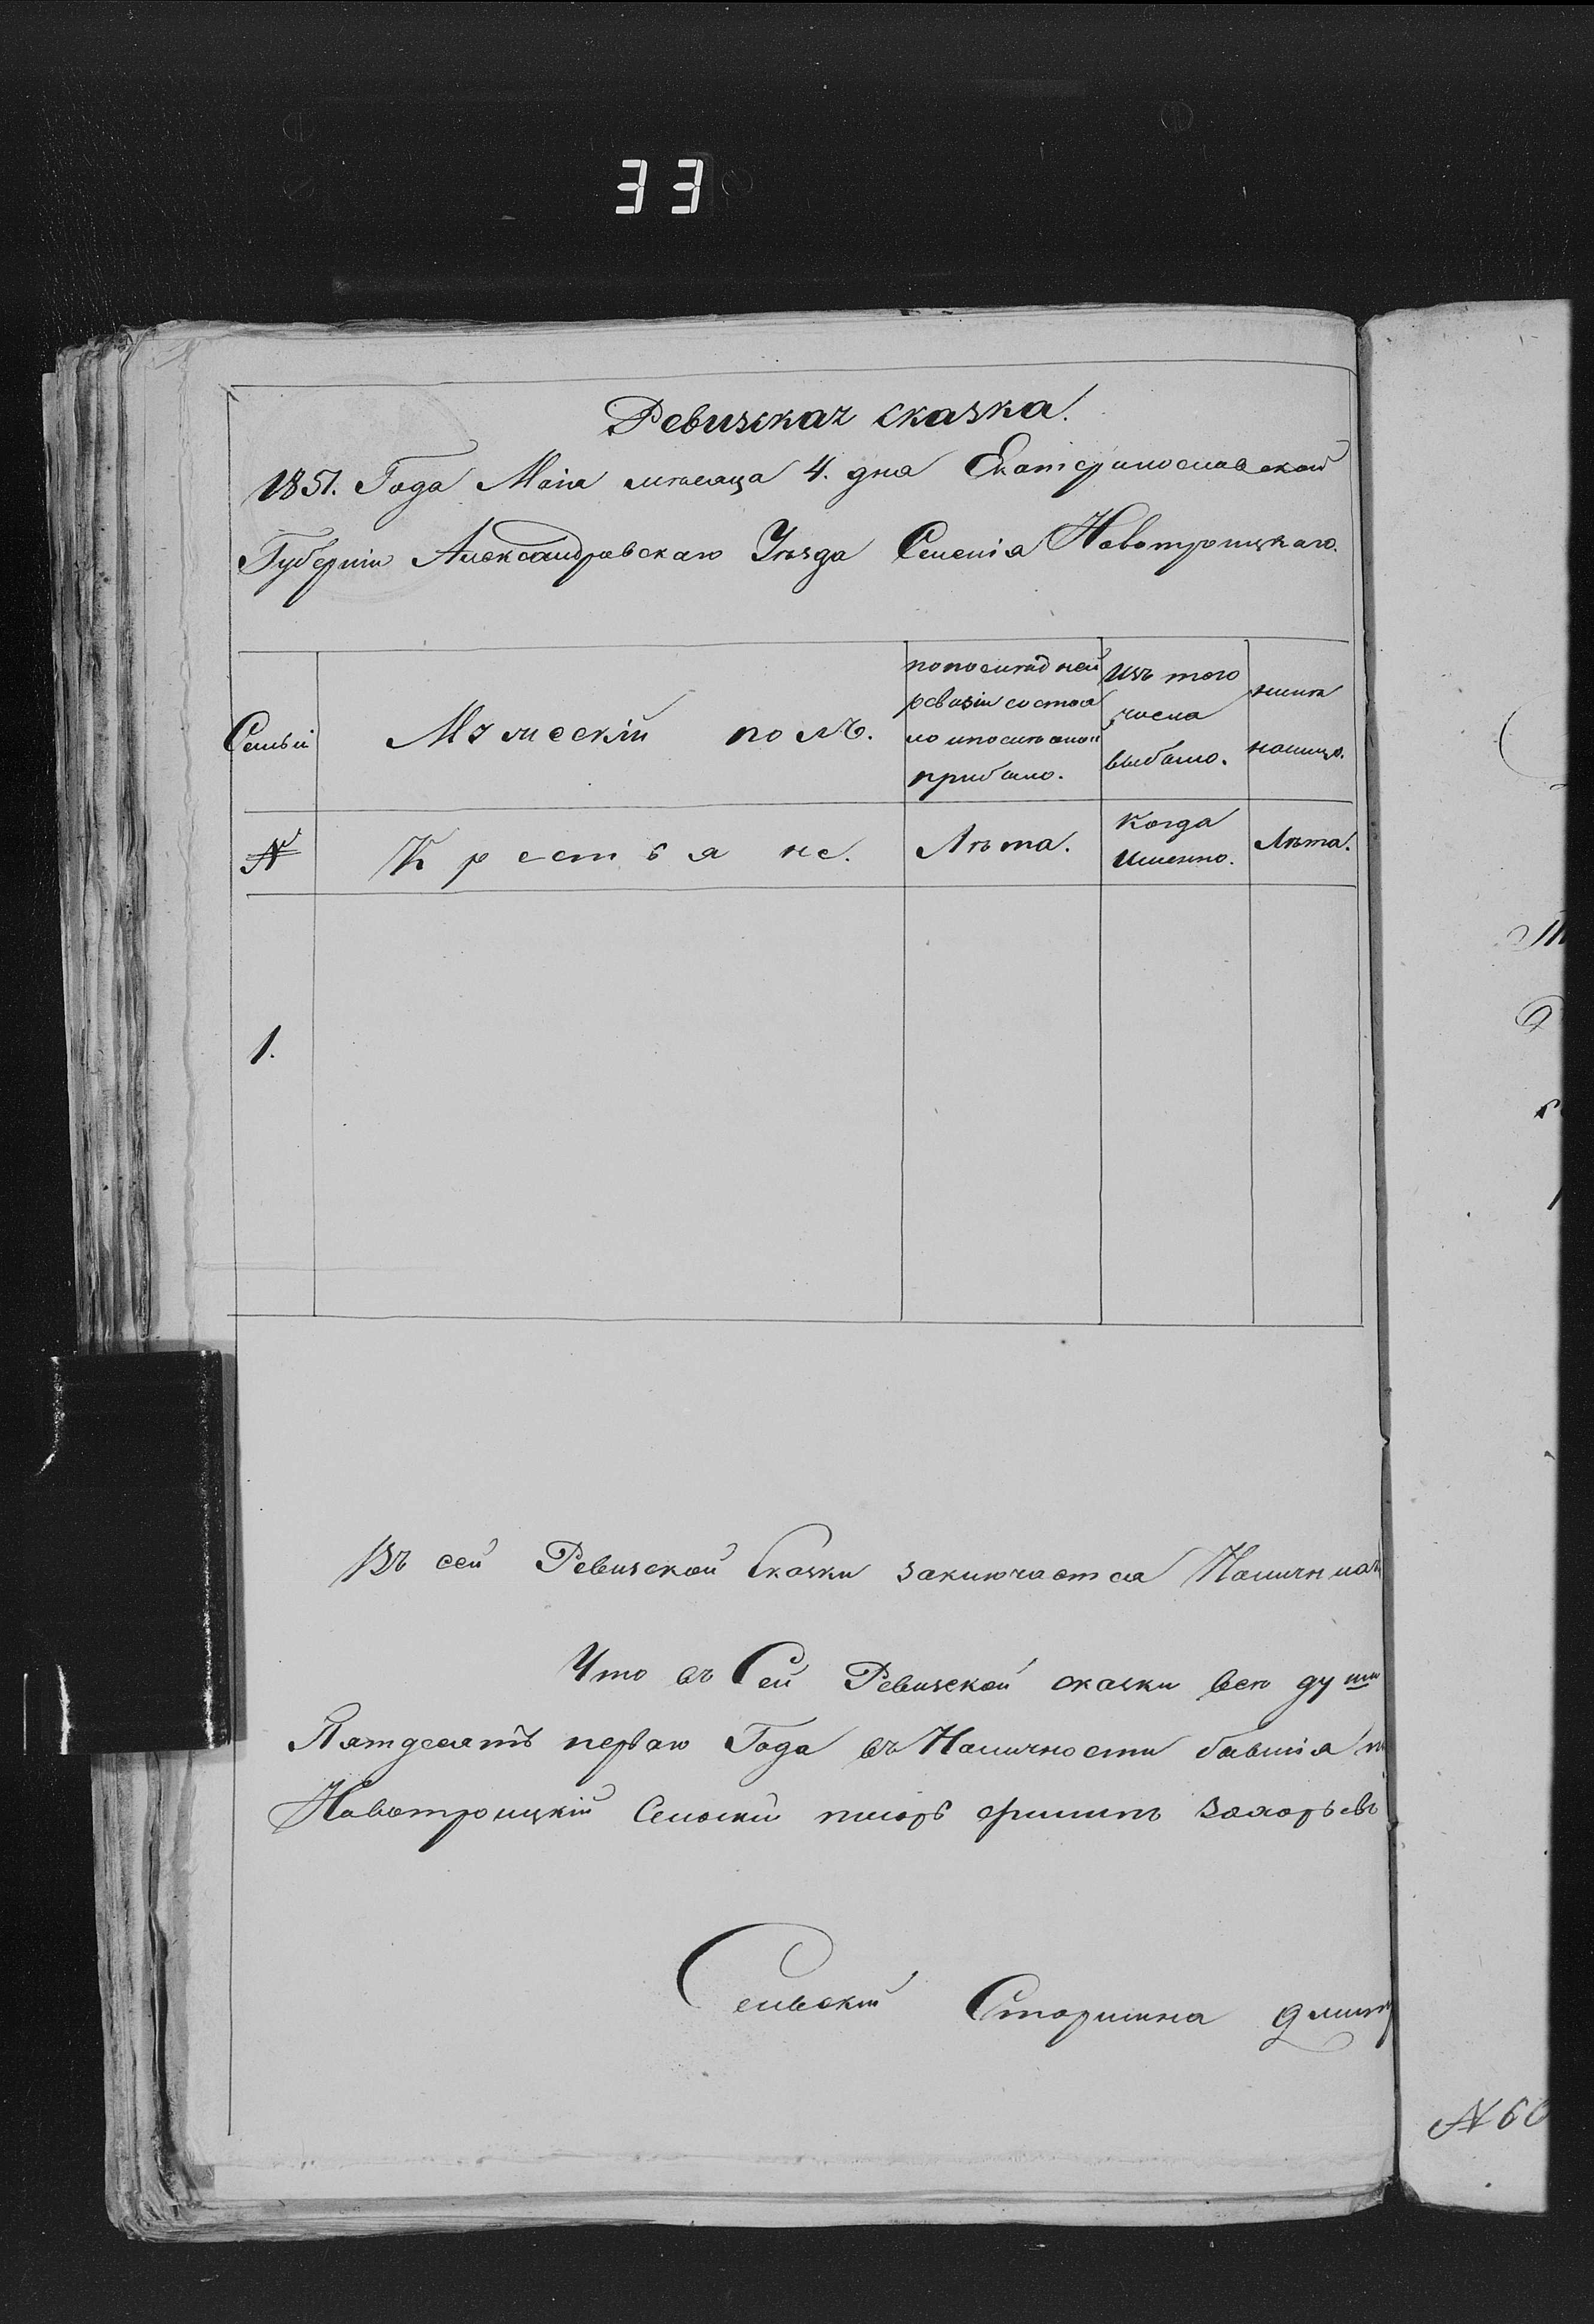 33
Ревизская сказка.
1851. Года Маiя мѣсяца 4. дня Екатеринославской
Губернiи Александровскаго Уѣзда Селенiя Новотроицкаго.
Семьи
Мужескiй полъ.
попослѣдней
ревизiи состоя
ло ипослѣ оной
прибыло.
Изъ того
числа
выбыло.
нынѣ
налицо.
№
Крестьяне.
Лѣта.
Когда
Именно.
Лѣта.
1.
Въ сей Ревизской Сказки заключается
Что въ Сей Ревизской сказки всѣ души
Пятдесятъ перваго Года въ Наличности бывшiя
Новотроицкiй Сельскiй писарь Филипъ Захарьевъ
Сельскiй Старшина
№ 60